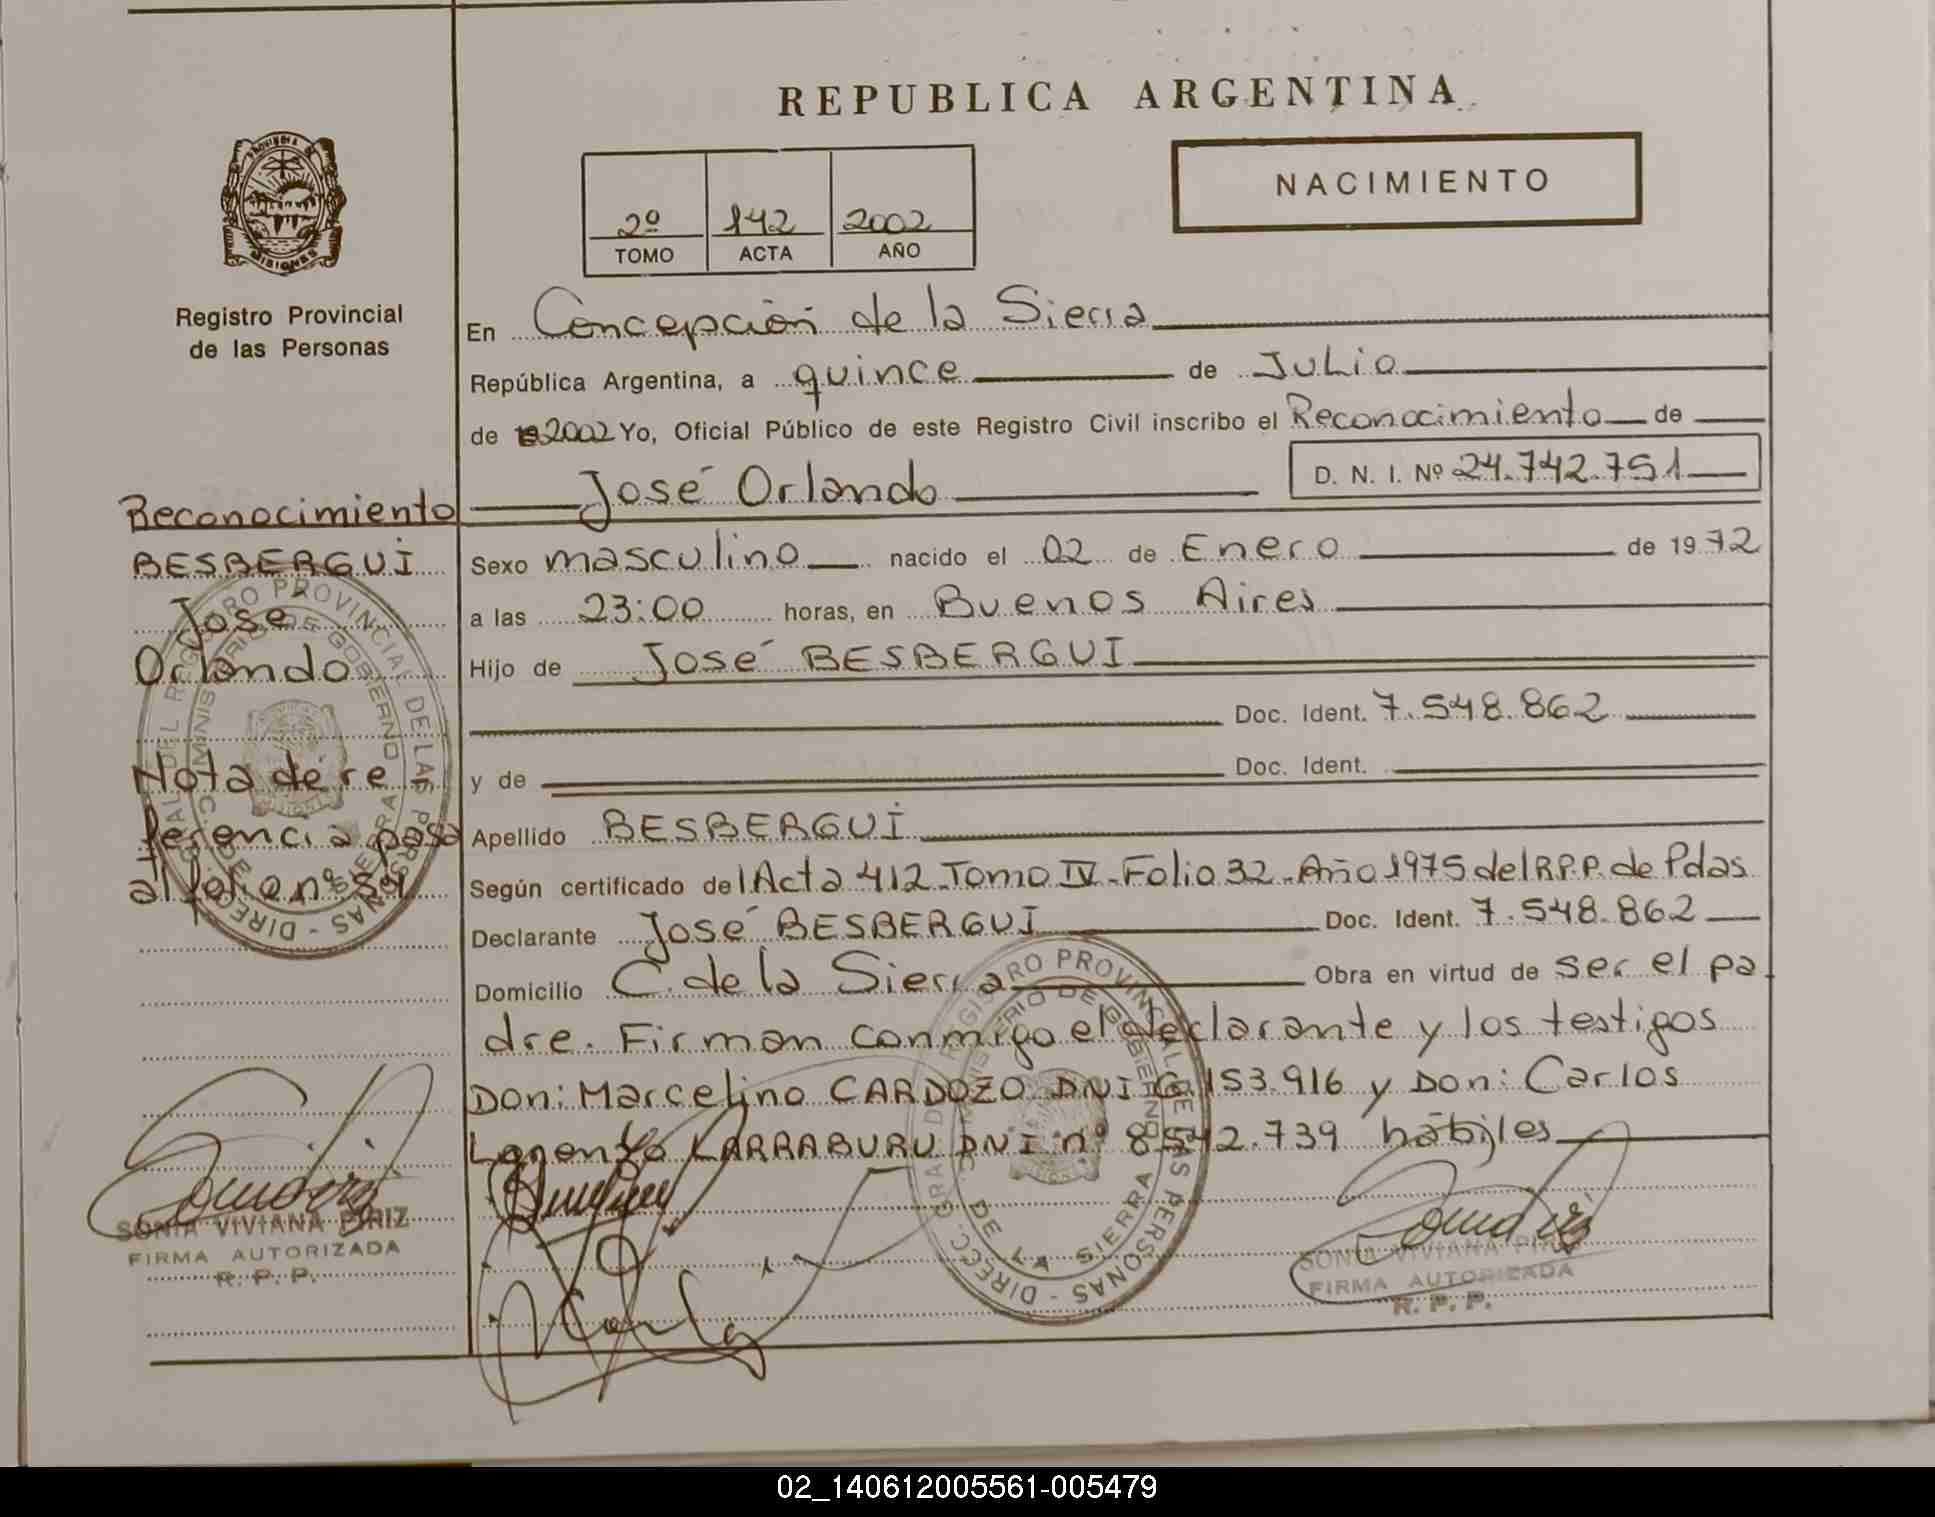 REPUBLICA ARGENTINA
NACIMIENTO
2º 142 2002
TOMO ACTA AÑO
PROVINCIA DE MISIONES
Registro Provincial
de las Personas
En Concepción de la Sierra
República Argentina, a quince de Julio
de 2002 Yo, Oficial Público de este Registro Civil inscribo el Reconocimiento de
José Orlando D. N. I. Nº 24.742.751
Sexo masculino nacido el 02 de Enero de 1972
a las 23:00 horas, en Buenos Aires
Hijo de José BESBERGUI
Doc. Ident. 7.548.862
y de Doc. Ident.
Apellido BESBERGUI
Según certificado del Acta 412-Tomo IV-Folio 32-Año 1975 del R.P.P. de Pdas
Declarante José BESBERGUI Doc. Ident. 7.548.862
Domicilio C. de la Sierra Obra en virtud de ser el pa
dre. Firman conmigo el declarante y los testigos
Don: Marcelino CARDOZO DNI 153.916 y Don: Carlos
LARRABURU DNI nº 8542.739 hábiles
Reconocimiento
BESBERGUI
Jose
Orlando
Nota de re
ferencia pasa
al folio nº
SONIA VIVIANA PIRIZ
FIRMA AUTORIZADA
R. P. P.
SONIA VIVIANA PIRIZ
FIRMA AUTORIZADA
R. P. P.
02_140612005561-005479